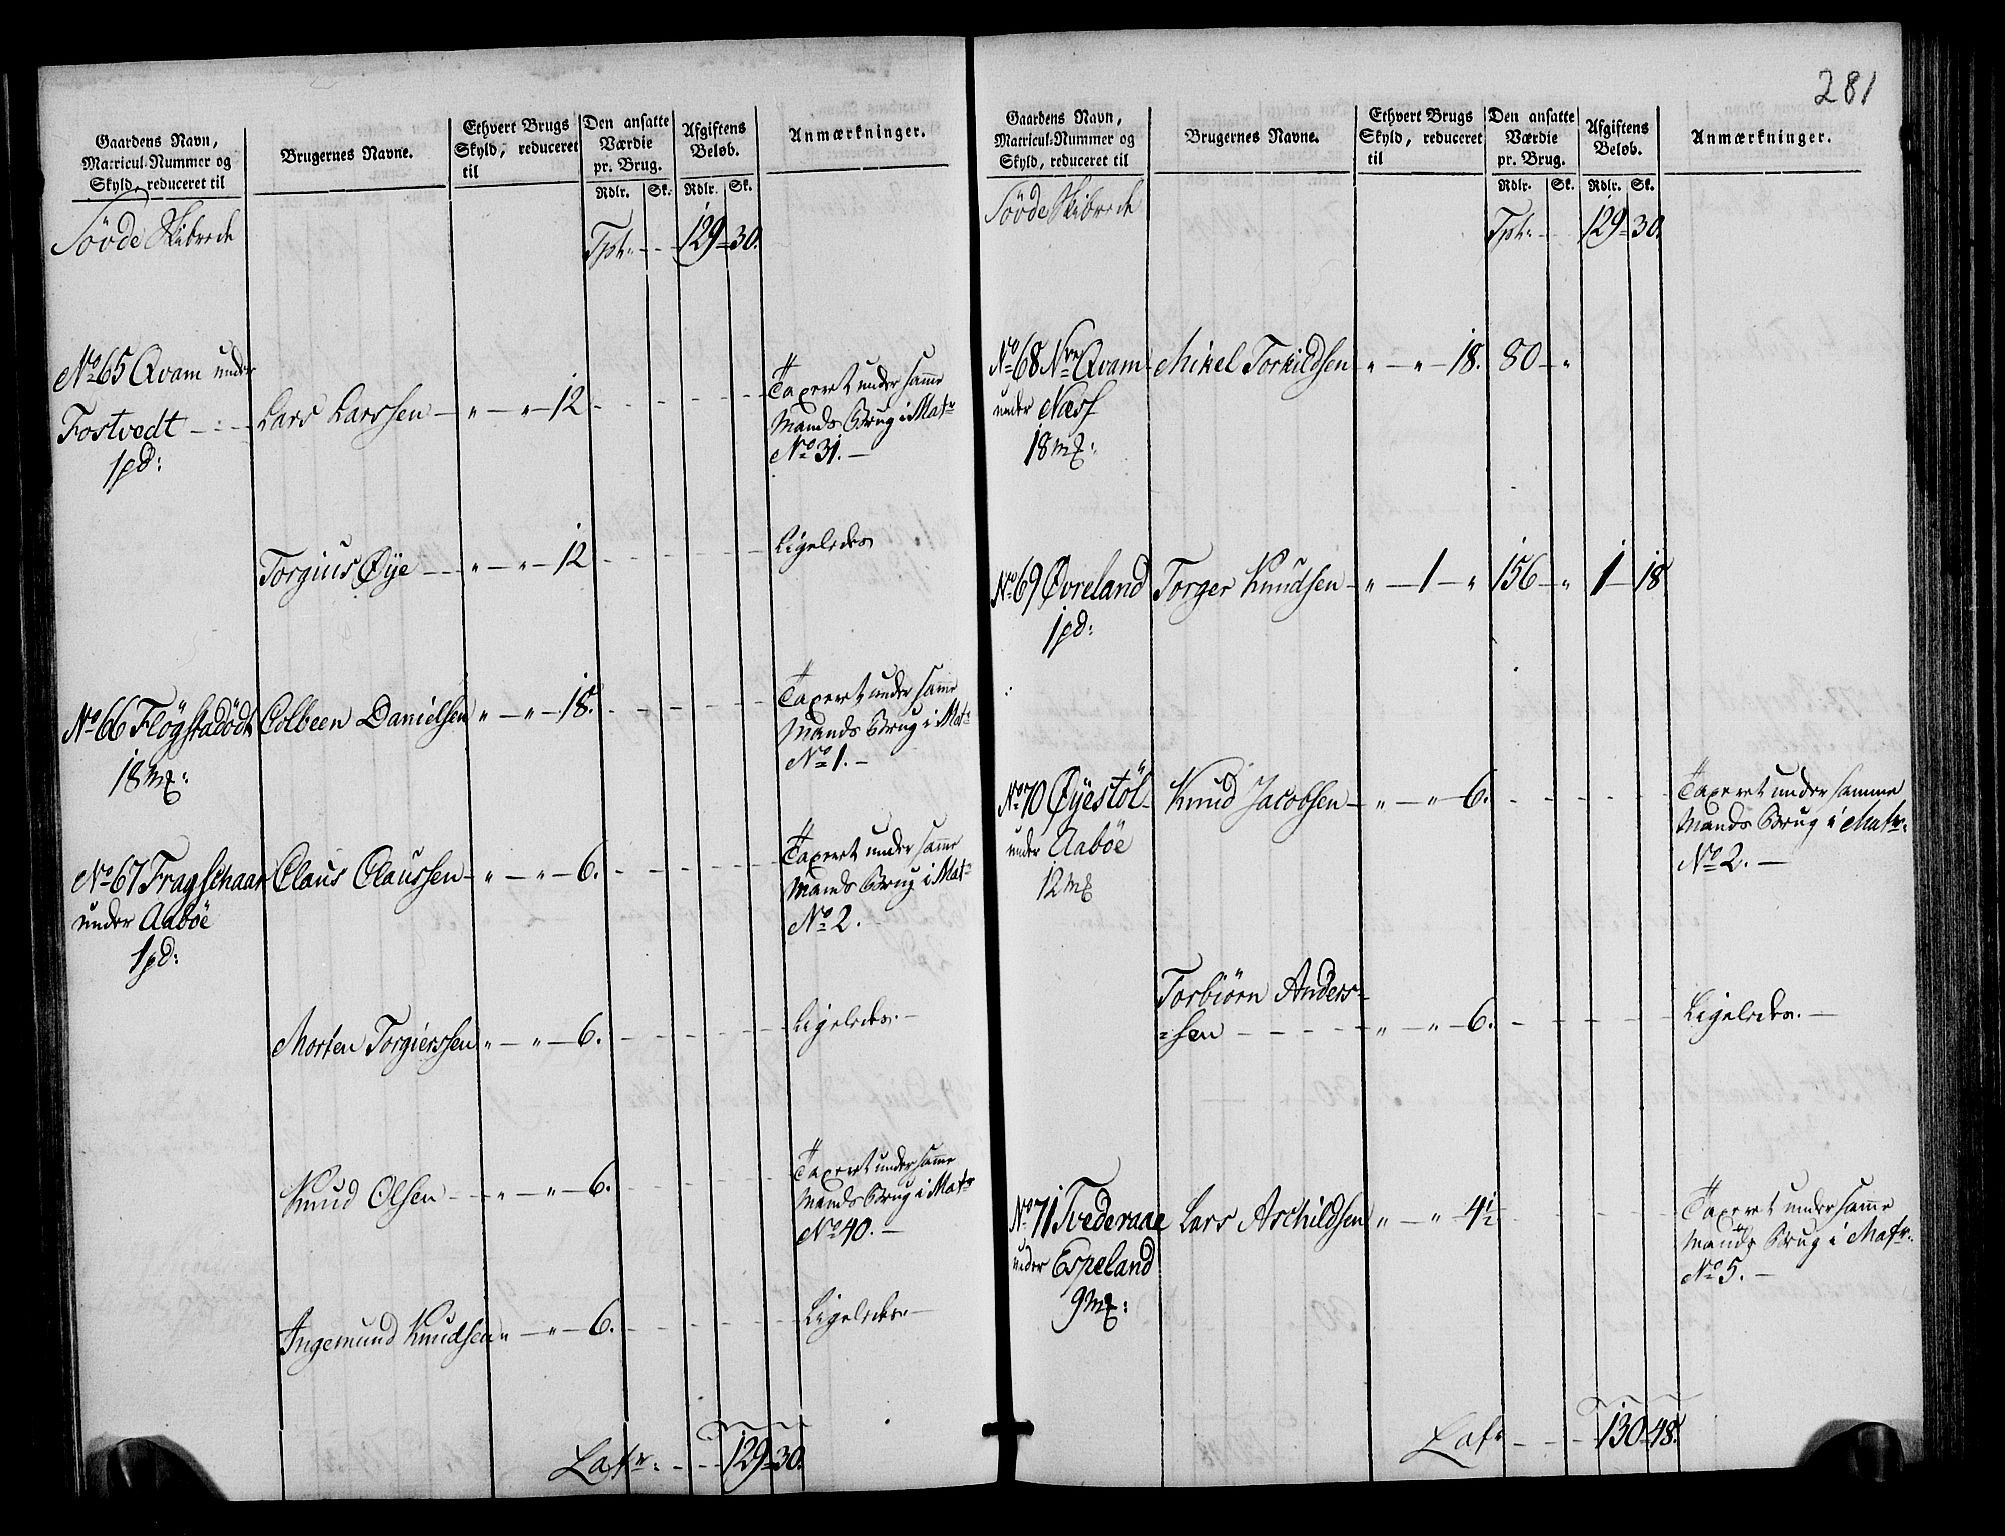 Gaardens Navn,
Matricul-Nummer og
Skyld, reduceret til
Brugernes Navne.
Ethvert Brugs
Skyld, reduceret
til
Den ansatte
Værdie
pr. Brug.
Rdlr. Sk.
Afgiftens
Beløb.
Rdlr. Sk.
Anmærkninger.
Søvde Skibrede Tpt: - - 129 - 30.
No 65 Qvam under
Fostvedt - : - Lars Larssen - " - " - 12 - - - - - Taxeret under samme
Mands Brug i Matr
No 31. -
1pd:
Torgius Øye - - " - " - 12 - - - - - Ligeledes
No 66 Fløgstadødt Colbeen Danielsen " - " - 18. - - - - - Taxeret under samme
Mands Brug i Matr
No 1. -
18 mk:
No 67 Fragschaar Claus Claussen - " - " - 6. - - - - - Taxeret under samme
under Aabøe Mands Brug i Matr
No 2.
1pd:
Morten Torgierssen " - " - 6. - - - - - Ligeledes. -
Knud Olsen - - " - " - 6. - - - - - Taxeret under samme
Mands Brug i Matr
No 40. -
Ingemund Knudsen " - " - 6. - - - - - Ligeledes. -
Latr: - - - 129 - 30.
281
Gaardens Navn,
Matricul-Nummer og
Skyld, reduceret til
Brugernes Navne.
Ethvert Brugs
Skyld, reduceret
til
Den ansatte
Værdie
pr. Brug.
Rdlr. Sk.
Afgiftens
Beløb.
Rdlr. Sk.
Anmærkninger.
Søvde Skibrede Tpt: - - 129 - 30.
No 68 Nre Qvam - Mikel Torkildsen " - " - 18. 80 - "
under Næsf
18 mk:
No 69 Øvreland Torger Knudsen - " - 1 - " 156 - " 1 - 18
1pd:
No 70 Øyestöl - Knud Jacobsen - " - " - 6. - - - - - Taxeret under samme
under Aabøe Mands Brug i Matr:
No 2. -
12 mk
Torbiørn Anders=
=sen - - - - - " - " - 6. - - - - - Ligeledes. -
No 71 Tvederaae Lars Aschildsen " - " 4 1/2 - - - - - Taxeret under samme
under Espeland Mands Brug i Matr:
No 5. -
9 mk:
Latr - - - 130 - 48.